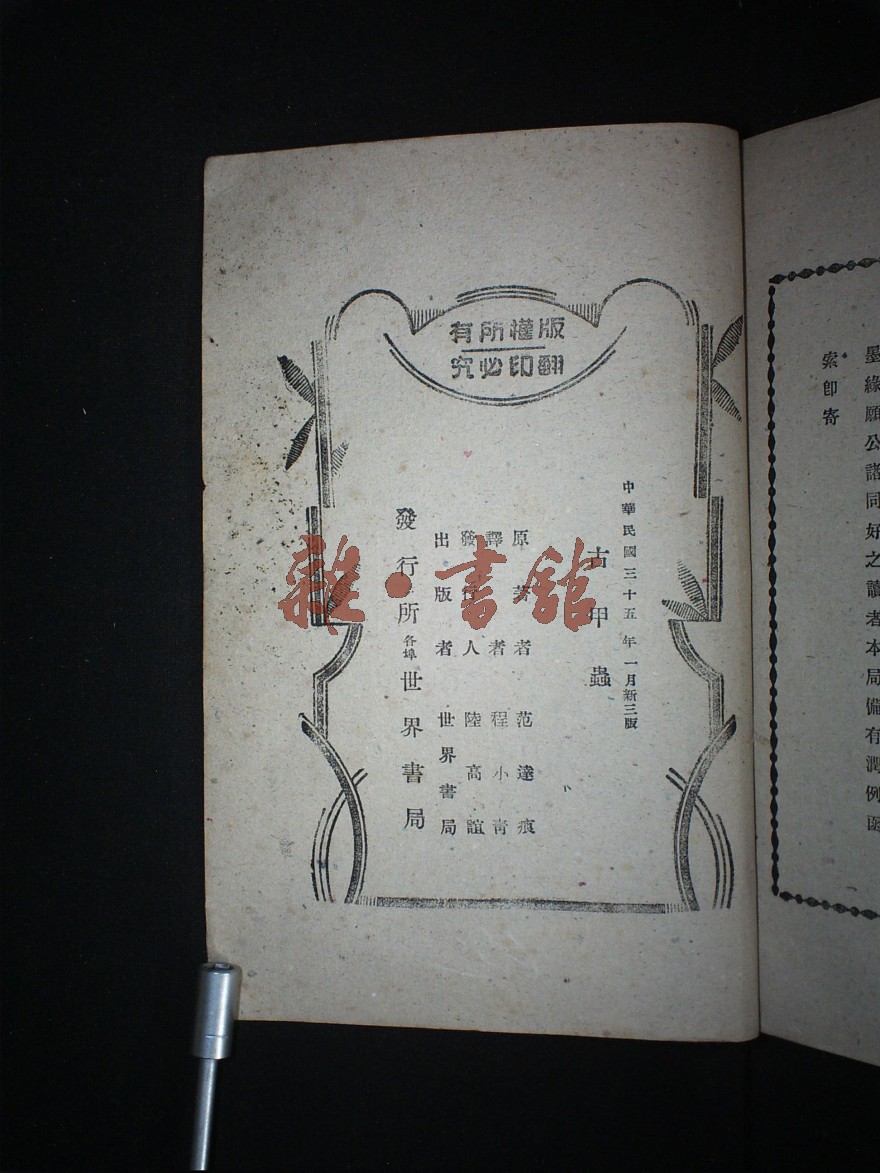 墨緣願公諸同好之讀者本局備有潤例函
索卽寄
版權所有
翻印必究
中華民國三十五年一月新三版
古甲蟲
原著者 范達痕
譯者 程小青
發行人 陸高誼
出版者 世界書局
發行所 各埠 世界書局
雜·書館